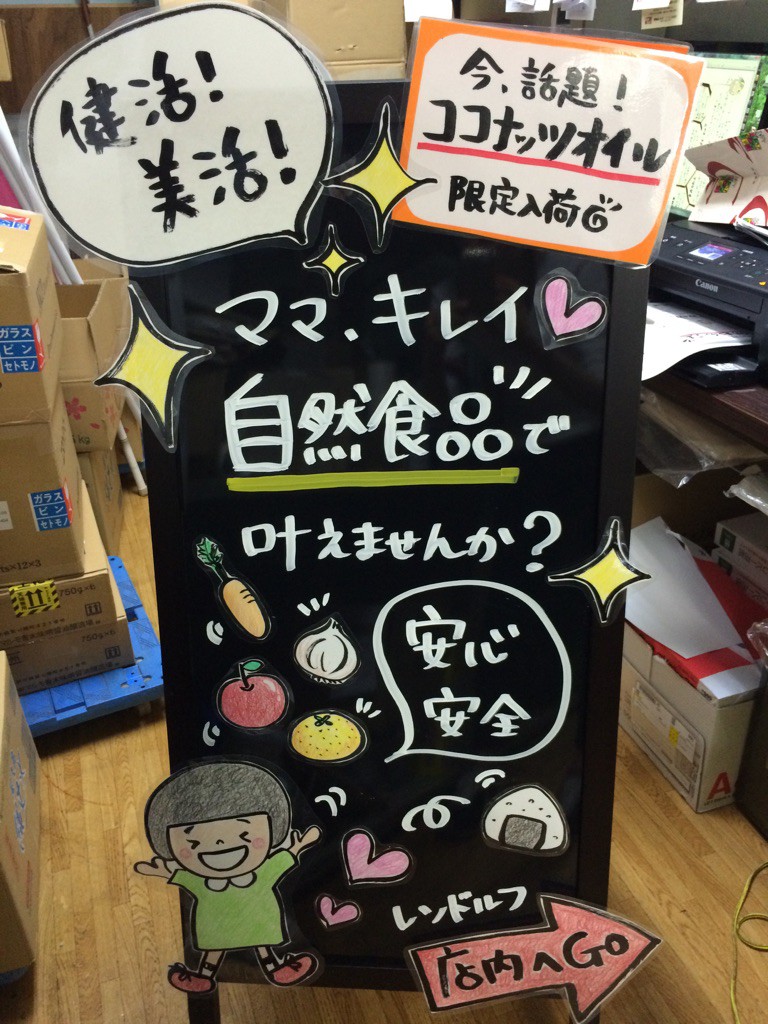 健活!
美活!
今、話題!
ココナッツオイル
限定入荷
ママ、キレイ
自然食品で
叶えませんか?
安心
安全
レンドルフ
店内へGO
Canon
ガラス
ビン
セトモノ
ガラス
ビン
セトモノ
750g×6
750g×6